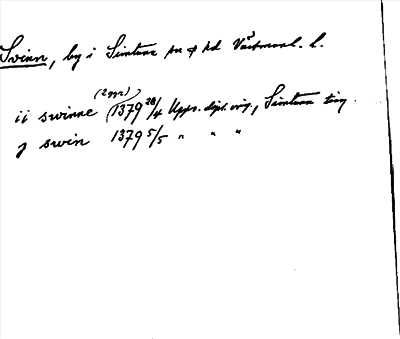 Svinn, by i Simtuna sn o hd Västmanl. l.
(2 m)
ii swinne (1379 28/4 Upps. dipl. orig, Simtuna ting.
j swin 1379 5/5 " " "